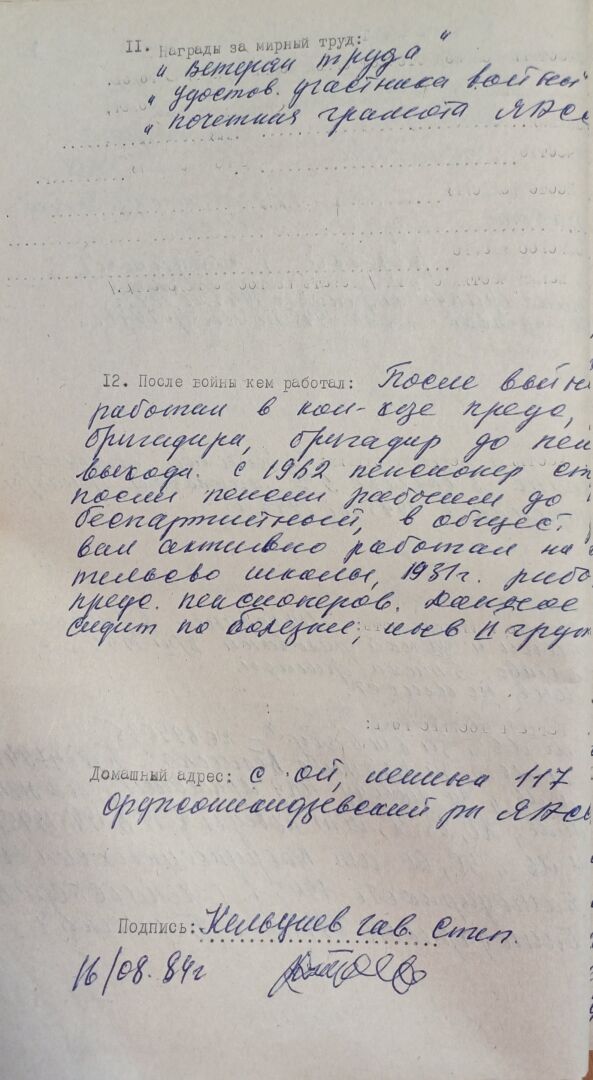 II. Награды за мирный труд:
" ветеран труда "
" удостов. участника войны
" почетная грамота ЯАСС
12. После войны кем работал: После войн
работал в кол-хзе предс,
бригадира, бригадир до пен
выхода. С 1962 пенсионер ст
посли пенсии рабочим до
беспартистный, в общест.
вал активно работал на
тельсво школы, 1931г. рибо
предс. пенсионеров. Данное
сидит по болезни, инв II груп
Домашный адрес: с. Ой, ленина 117
оржоникидзевский рн ЯАСС
Подпись: Кельциев Гав. Степ.
16/08.84г